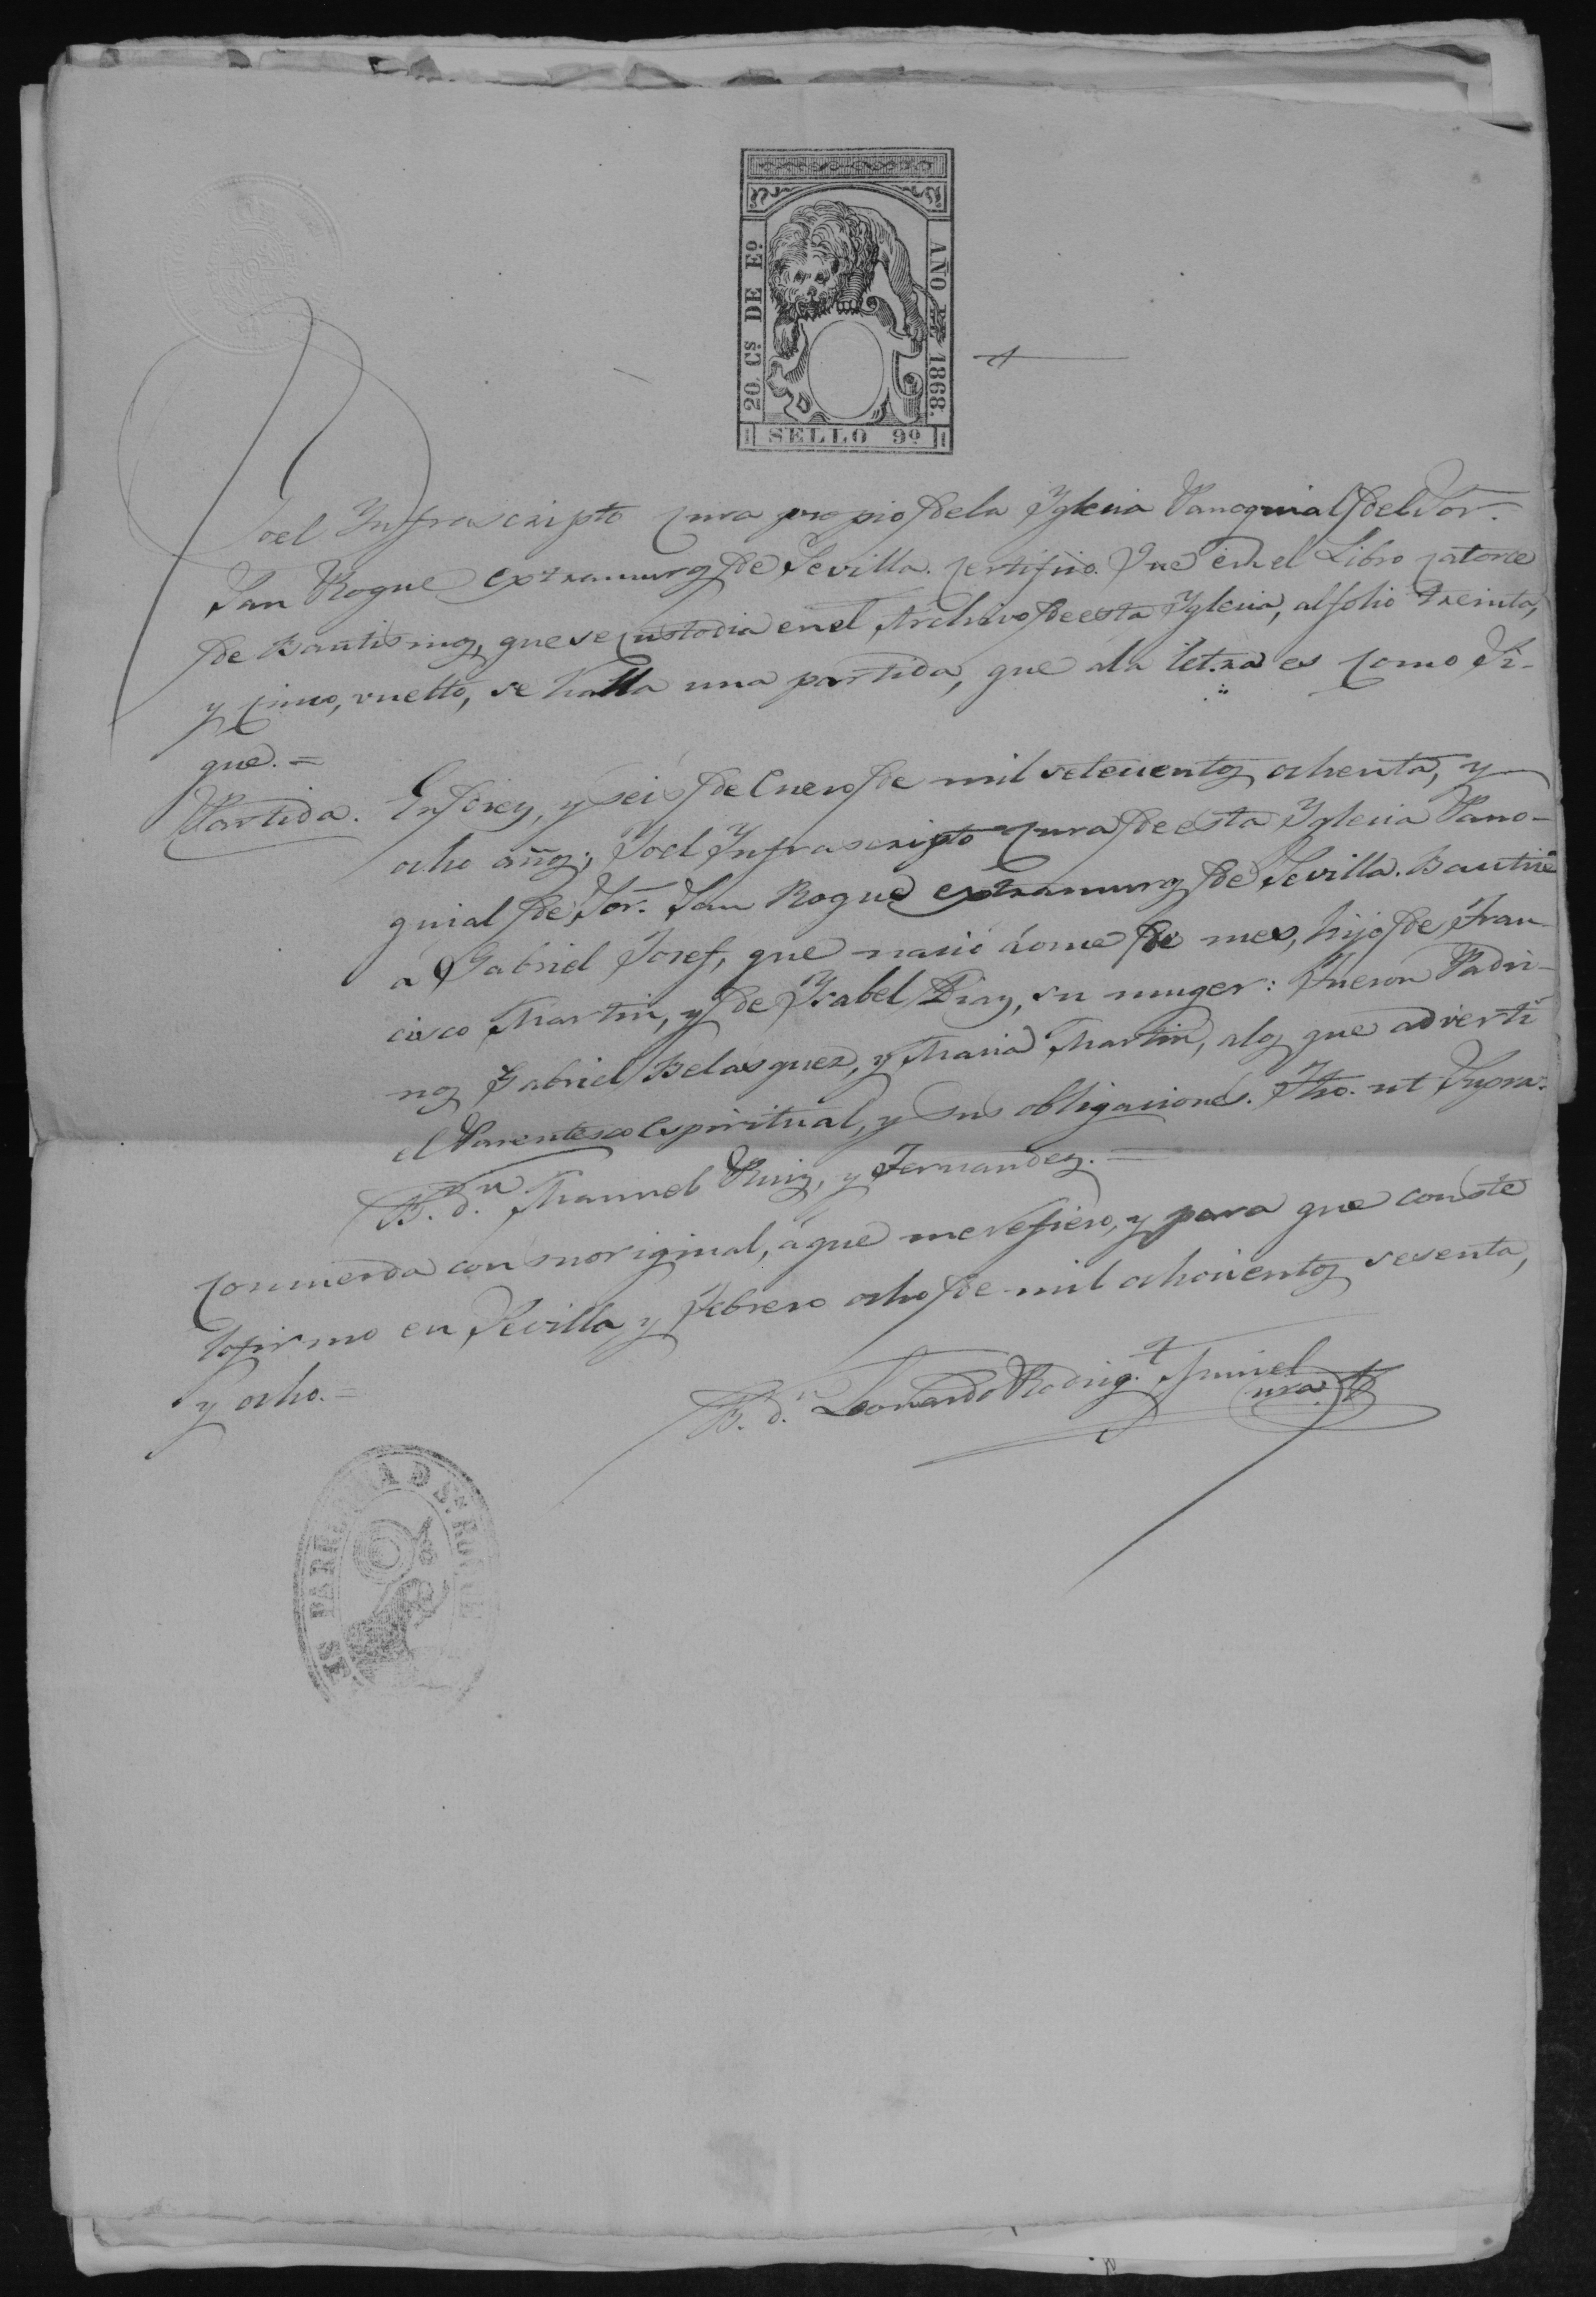 20 Cs. DE Eo.
AÑO DE 1868.
SELLO 9º
Yo el Ynfrascripto Cura propio de la Yglecia Parroquial del Sor.
San Roque extramuros de Sevilla. Certifico. Que en el Libro catorce
de Bautismos, que se custodia en el Archivo de esta Yglecia, al folio treinta,
y cinco, vuelto, se halla una partida, que ala letra es como Si-
gue.=
Partida. En diez, y seis de Enero de mil setecientos ochenta, y
ocho años; Yo el Ynfrascripto Cura de esta Yglecia Parro-
quial de Sor. San Roque extramuros de Sevilla. Bautisé
a Gabriel Josef, que nació á once de mes, hijo de Fran-
cisco Martin, y de Ysabel Diaz, su muger: Fueron Padri-
nos Gabriel Belasquez, y Maria Martin, alos que advertí
el Parentesco Espiritual, y sus obligaciones. Fho. ut Supra.
B. Dn. Manuel Ruiz, y Fernandez.=
Concuerda con su original, á que me refiero, y para que conste
lo firmo en Sevilla y Febrero ocho de mil ochocientos sesenta,
y ocho.=
B. Dn. Leonardo Rodrig.
Cura
PARROQUIA D Sn. ROQUE